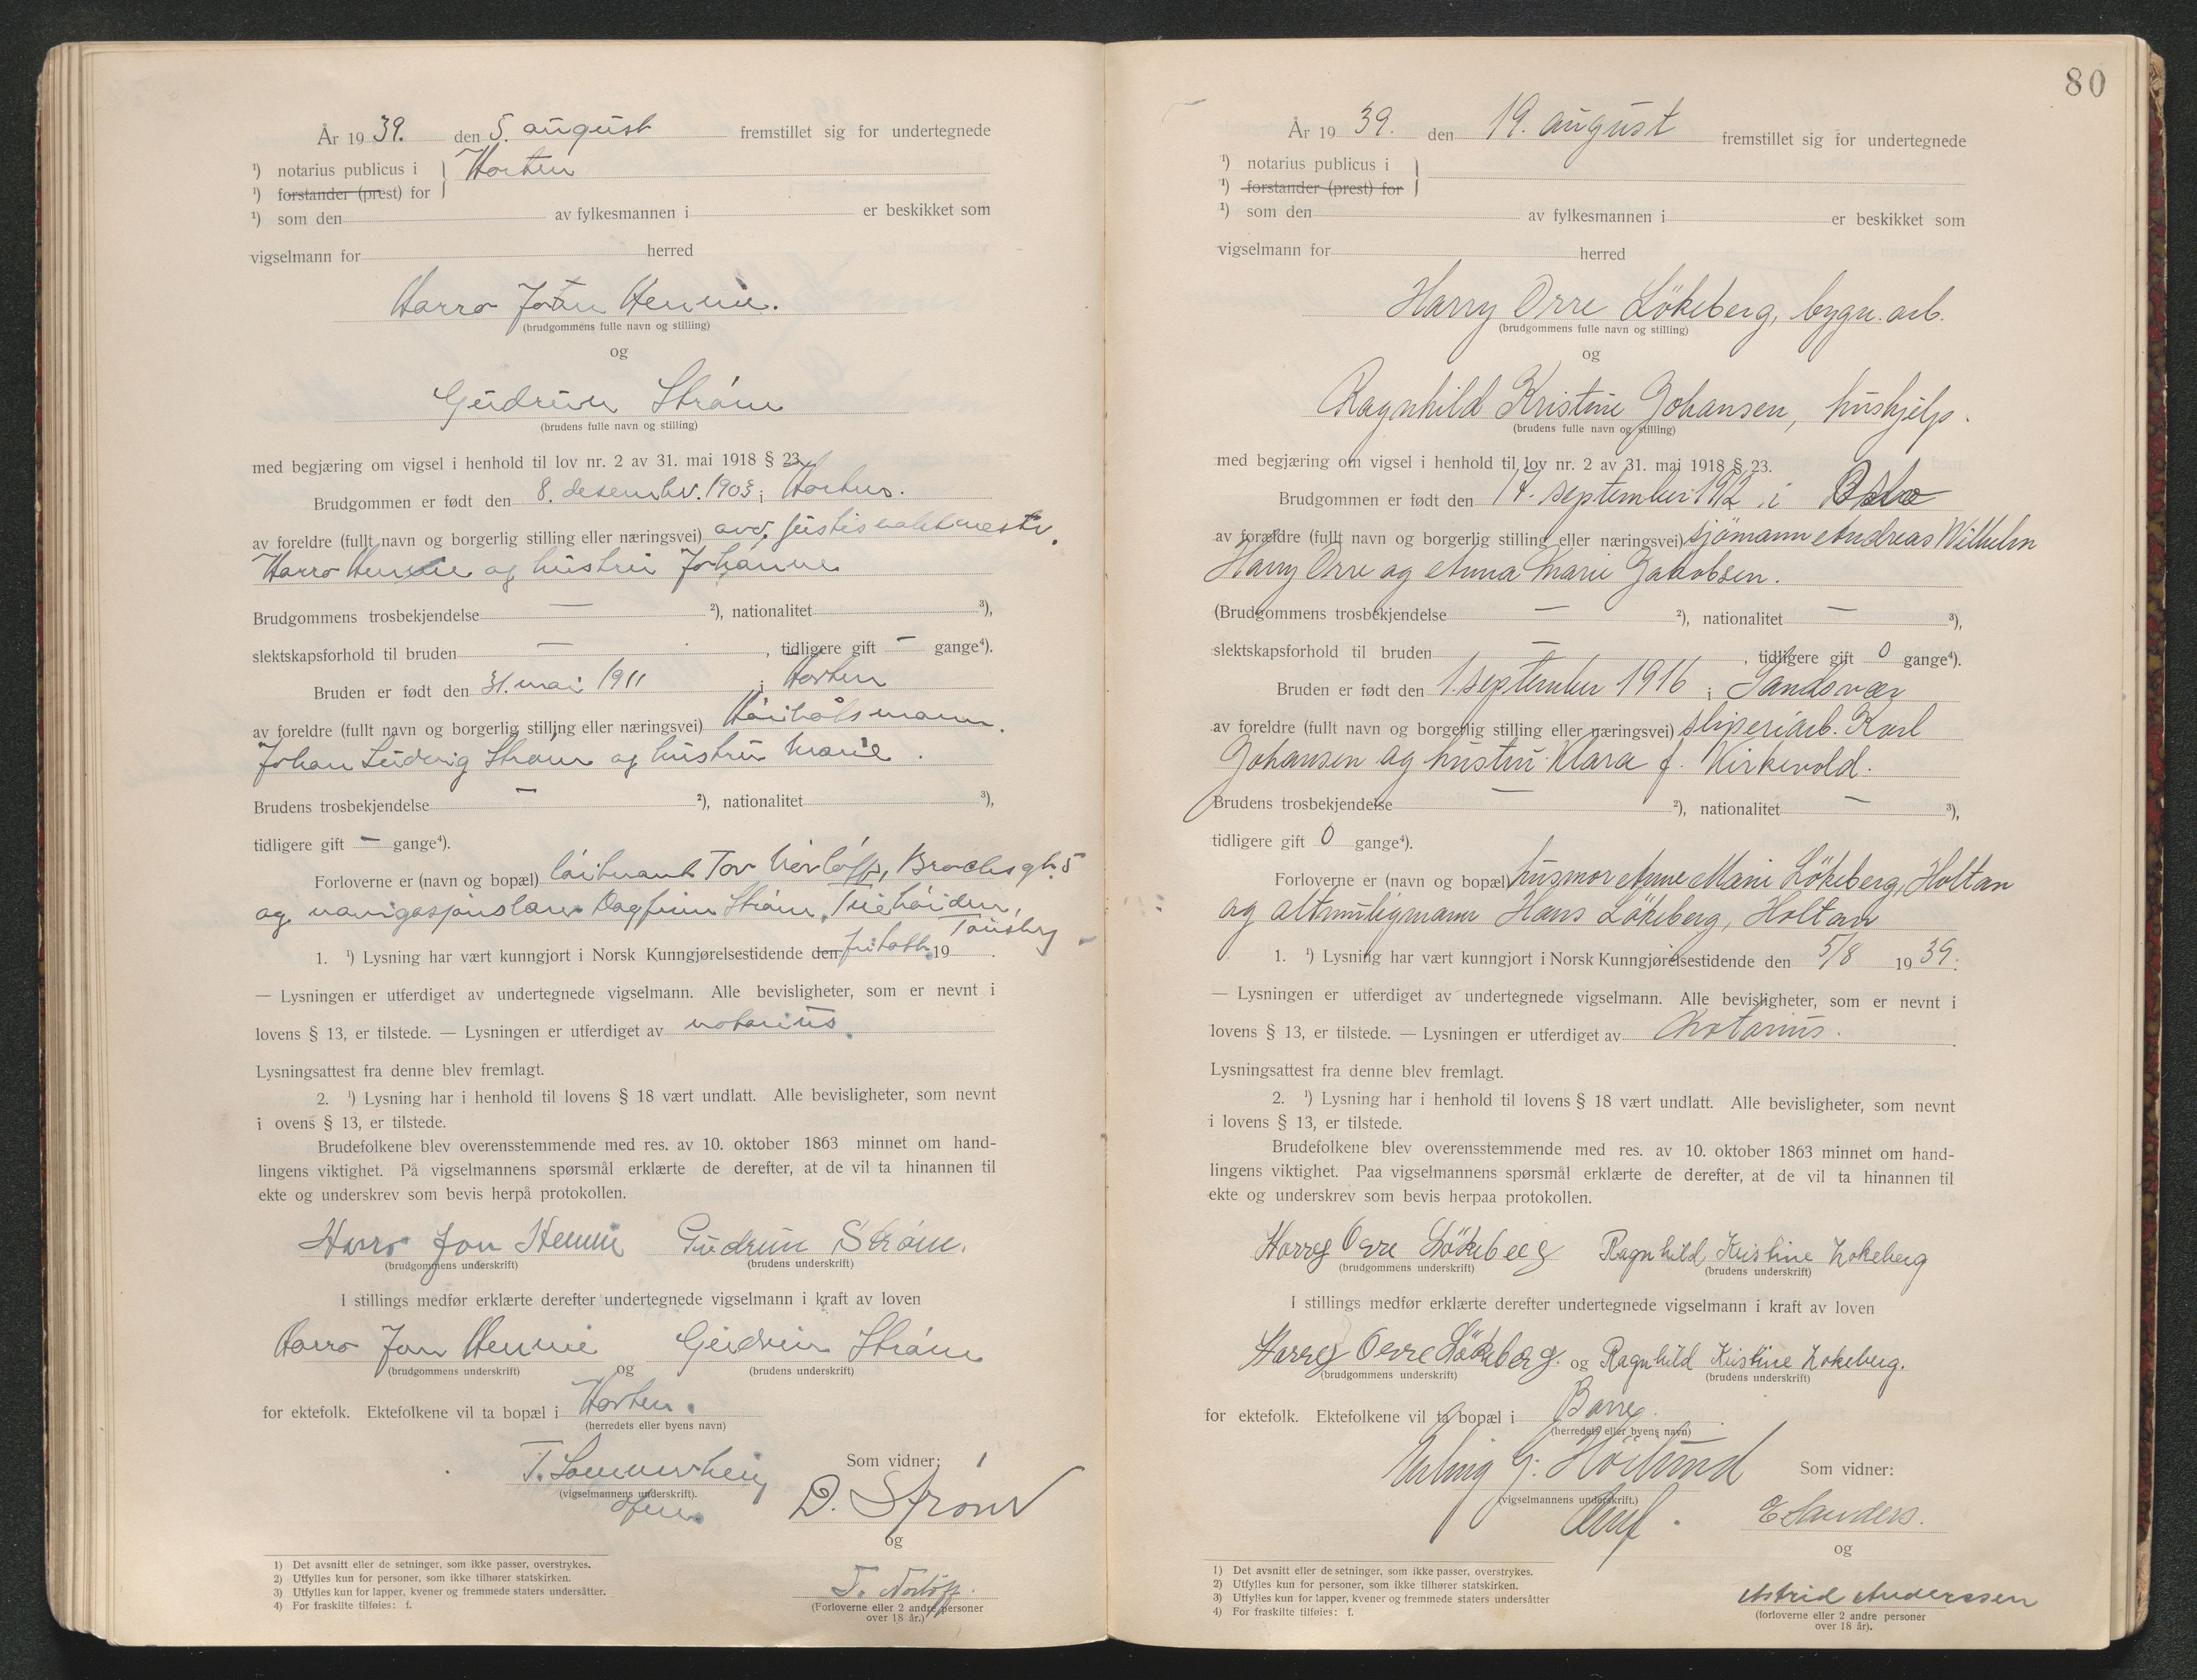 År 1939. den 5. august fremstillet sig for undertegnede
¹) notarius publicus i } Horten
¹) forstander (prest) for
¹) som den av fylkesmannen i er beskikket som
vigselmann for herred
Harro Jon Hennie.
(brudgommens fulle navn og stilling)
og
Gudrun Strøm
(brudens fulle navn og stilling)
med begjæring om vigsel i henhold til lov nr. 2 av 31. mai 1918 § 23.
Brudgommen er født den 8. desember. 1903 i Horten.
av foreldre (fullt navn og borgerlig stilling eller næringsvei) avd. justisvaktmester
Harro Hennie og hustru Johanne
Brudgommens trosbekjendelse — ²), nationalitet ³),
slektskapsforhold til bruden — , tidligere gift — gange⁴).
Bruden er født den 31. mai 1911 i Horten
av foreldre (fullt navn og borgerlig stilling eller næringsvei)
Johan Ludvig Strøm og hustru Marie.
Brudens trosbekjendelse — ²), nationalitet ³),
tidligere gift — gange⁴).
Forloverne er (navn og bopæl) løitnant Tor 5
og navigasjonslærer Dagfinn Strøm,
Tønsberg
1. ¹) Lysning har vært kunngjort i Norsk Kunngjørelsestidende den 19 .
— Lysningen er utferdiget av undertegnede vigselmann. Alle bevisligheter, som er nevnt i
lovens § 13, er tilstede. — Lysningen er utferdiget av notarius.
Lysningsattest fra denne blev fremlagt.
2. ¹) Lysning har i henhold til lovens § 18 vært undlatt. Alle bevisligheter, som nevnt
i ovens § 13, er tilstede.
Brudefolkene blev overensstemmende med res. av 10. oktober 1863 minnet om hand-
lingens viktighet. På vigselmannens spørsmål erklærte de derefter, at de vil ta hinannen til
ekte og underskrev som bevis herpå protokollen.
Harro Jon Hennie Gudrun Strøm.
(brudgommens underskrift) (brudens underskrift)
I stillings medfør erklærte derefter undertegnede vigselmann i kraft av loven
Harro Jon Hennie og Gudrun Strøm
(brudgommens underskrift) (brudens underskrift)
for ektefolk. Ektefolkene vil ta bopæl i Horten.
(herredets eller byens navn)
Som vidner:
(vigselmannens underskrift).
D. Strøm
og
T. Nortøff.
(Forloverne eller 2 andre personer
over 18 år.)
1) Det avsnitt eller de setninger, som ikke passer, overstrykes.
2) Utfylles kun for personer, som ikke tilhører statskirken.
3) Utfylles kun for lapper, kvener og fremmede staters undersåtter.
4) For fraskilte tilføies: f.
80
År 1939. den 19. august fremstillet sig for undertegnede
¹) notarius publicus i }
¹) forstander (prest) for
¹) som den av fylkesmannen i er beskikket som
vigselmann for herred
Harry Orre Lökeberg, bygn. arb.
(brudgommens fulle navn og stilling)
og
Ragnhild Kristine Johansen, hushjelp.
(brudens fulle navn og stilling)
med begjæring om vigsel i henhold til lov nr. 2 av 31. mai 1918 § 23.
Brudgommen er født den 17. september 1912 i Oslo
av forældre (fullt navn og borgerlig stilling eller næringsvei) sjömann Andreas Wilhelm
Harry Orre og Anna Marie Jakobsen.
(Brudgommens trosbekjendelse — ²), nationalitet — ³),
slektskapsforhold til bruden — , tidligere gift 0 gange⁴).
Bruden er født den 1. september 1916 i Sandsvær
av foreldre (fullt navn og borgerlig stilling eller næringsvei) sliperiarb. Karl
Johansen og hustru Klara f. Kirkevold.
Brudens trosbekjendelse — ²), nationalitet — ³),
tidligere gift 0 gange⁴).
Forloverne er (navn og bopæl) husmor Anne Marie Lökeberg, Holtan
og altmuligmann Hans Lökeberg, Holtan
1. ¹) Lysning har vært kunngjort i Norsk Kunngjørelsestidende den 5/8 1939.
— Lysningen er utferdiget av undertegnede vigselmann. Alle bevisligheter, som er nevnt i
lovens § 13, er tilstede. — Lysningen er utferdiget av Notarius.
Lysningsattest fra denne blev fremlagt.
2. ¹) Lysning har i henhold til lovens § 18 vært undlatt. Alle bevisligheter, som nevnt
i lovens § 13, er tilstede.
Brudefolkene blev overensstemmende med res. av 10. oktober 1863 minnet om hand-
lingens viktighet. Paa vigselmannens spørsmål erklærte de derefter, at de vil ta hinannen til
ekte og underskrev som bevis herpaa protokollen.
Harry Orre Lökeberg Ragnhild Kristine Lokeberg
(brudgommens underskrift) (brudens underskrift)
I stillings medfør erklærte derefter undertegnede vigselmann i kraft av loven
Harry Orre Lökeberg. og Ragnhild Kristine Lokeberg.
(brudgommens underskrift) (brudens underskrift)
for ektefolk. Ektefolkene vil ta bopæl i Borre.
(herredets eller byens navn)
Erling G. Höilund Som vidner:
(vigselmannens underskrift.)
E Sanders.
og
Astrid Anderssen
(forloverne eller 2 andre personer
over 18 år).
1) Det avsnitt eller de setninger, som ikke passer, overstrykes.
2) Utfylles kun for personer, som ikke tilhører statskirken.
3) Utfylles kun for lapper, kvener og fremmede staters undersåtter
4) For fraskilte tilføies: f.